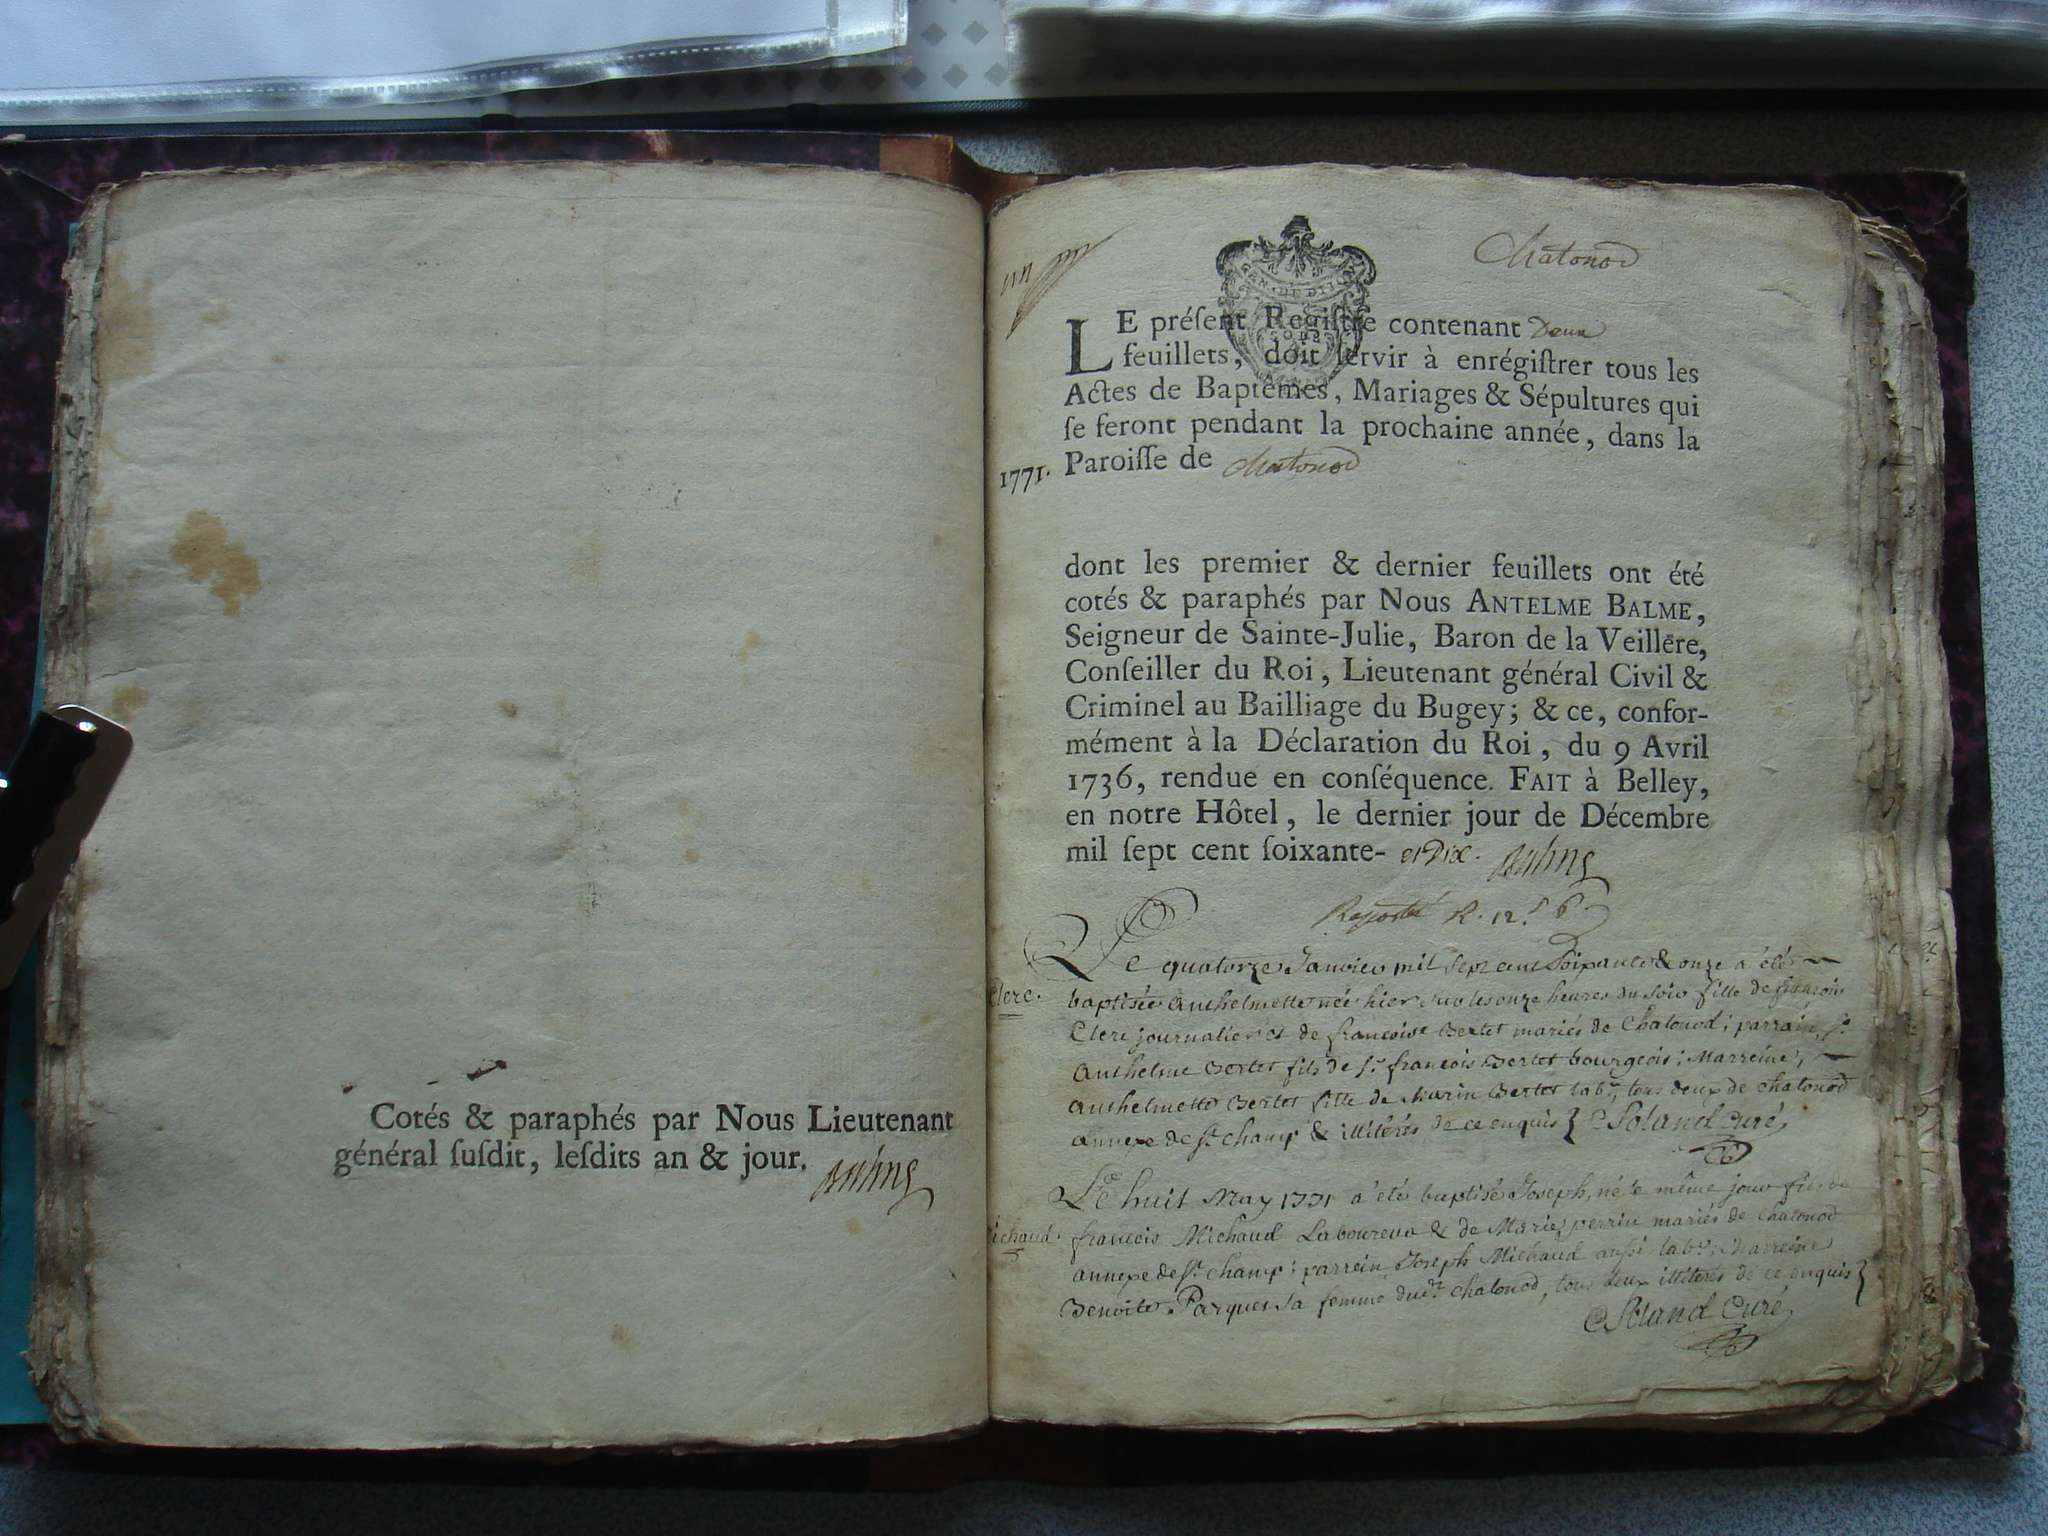 Cotés & paraphés par Nous Lieutenant
général ſuſdit, leſdits an & jour.
Chatonod
LE préſent Regiſtre contenant Deux
feuillets, doit ſervir à enrégiſtrer tous les
Actes de Baptêmes, Mariages & Sépultures qui
ſe feront pendant la prochaine année, dans la
1771. Paroiſſe de Chatonod
dont les premier & dernier feuillets ont été
cotés & paraphés par Nous ANTELME BALME,
Seigneur de Sainte-Julie, Baron de la Veillere,
Conſeiller du Roi, Lieutenant général Civil &
Criminel au Bailliage du Bugey; & ce, confor-
mément à la Déclaration du Roi, du 9 Avril
1736, rendue en conſéquence. FAIT à Belley,
en notre Hôtel, le dernier jour de Décembre
mil ſept cent ſoixante- et Dix.
R. 12
Le quatorze Janvier mil sept cent Soixante & onze a été
Clerc. baptisée Anthelmette née hier sur les onze heures du soir fille de françois
Clerc journalier et de françoise Bertet mariés de Chatonod; parrain, Sr
Anthelme Bertet fils de Sr françois Bertet bourgeois; Marreine,
Anthelmette Bertet fille de Marin Bertet labr, tous deux de chatonod
annexe de St champ & illitérés de ce enquis } Soland Curé
Le huit May 1771 a été baptisé Joseph, né le même jour fils de
Michaud. francois Michaud Laboureur & de Marie perrin mariés de chatonod
annexe de St champ; parrein Joseph Michaud aussi labr Marreine
Benoite Parques sa femme dudt chatonod, tous deux illiterés de ce enquis }
Soland Curé